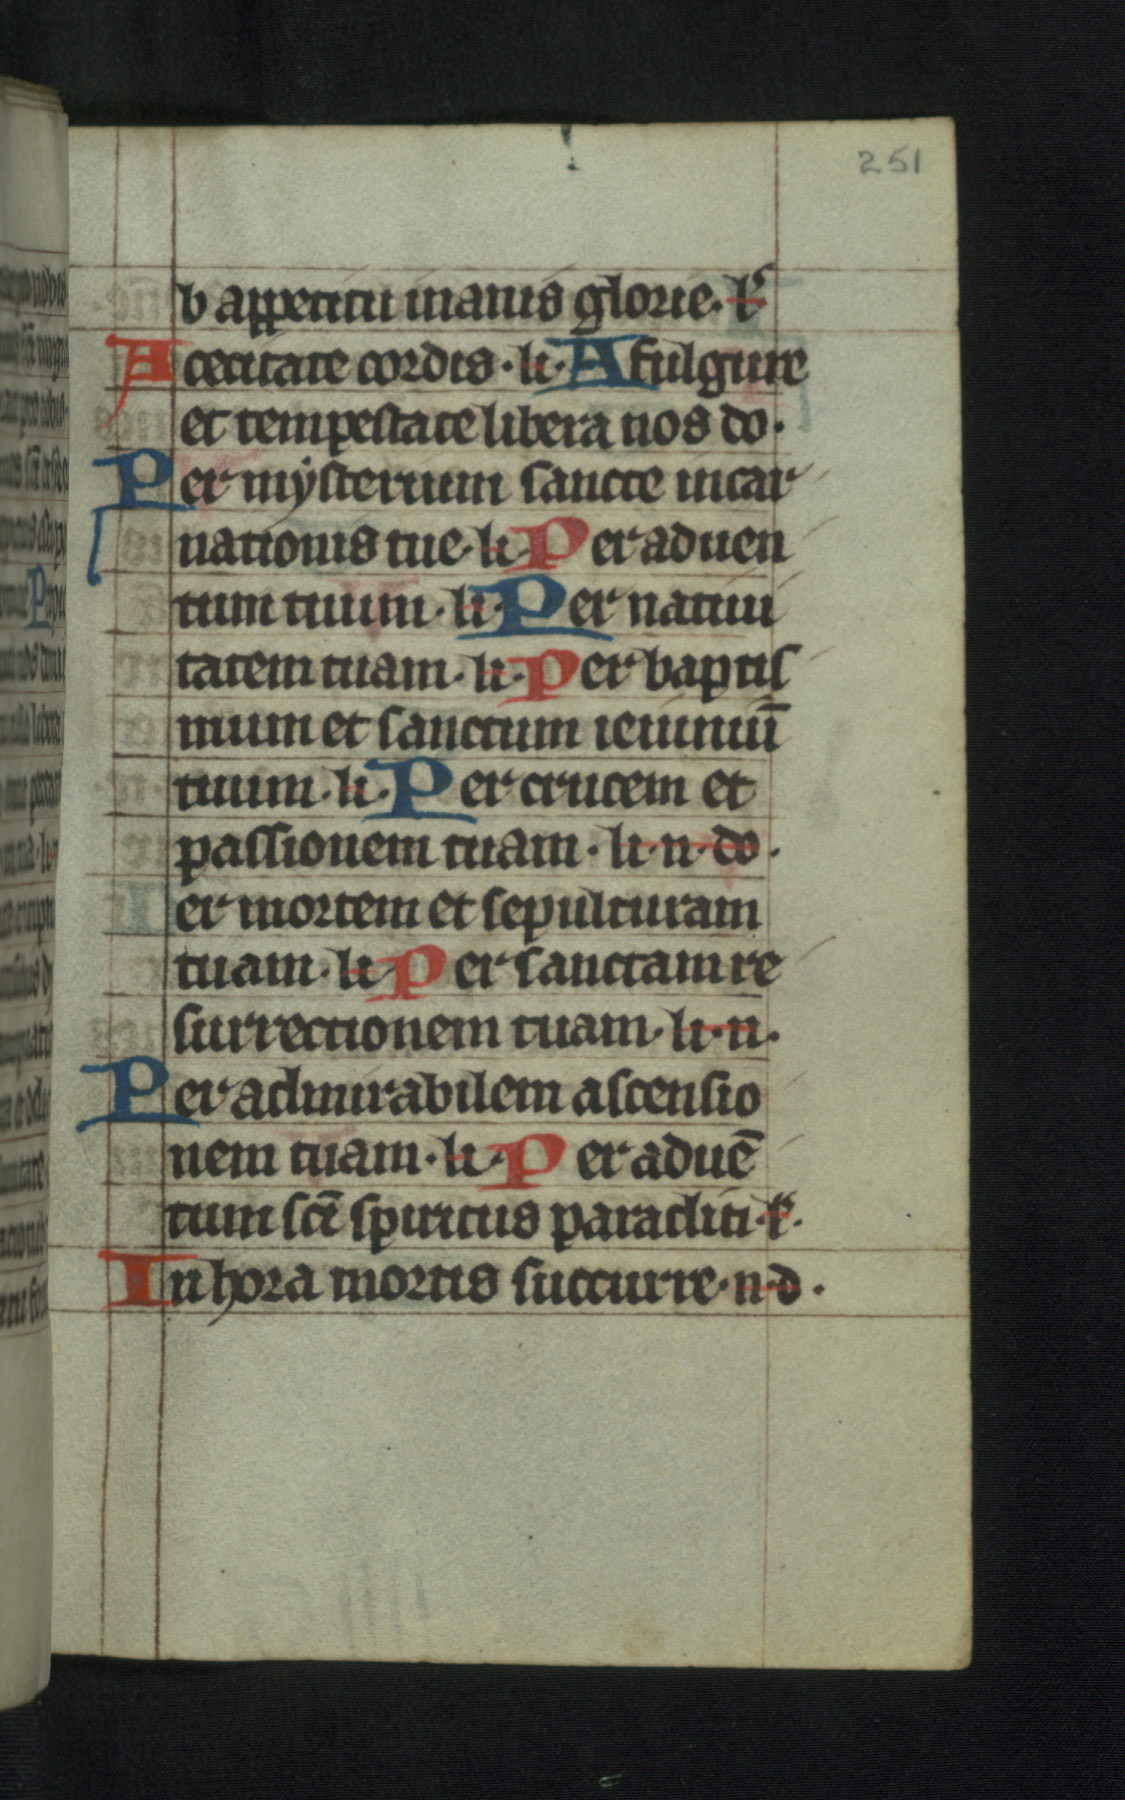 251
b appetitu inanis glorie. l'
A cecitate cordis. li. A fulgure
et tempestate libera nos do.
Per mysterium sancte incar
nationis tue. li. Per aduen
tum tuum. li. Per natiui
tatem tuam. li. Per baptis
mum et sanctum ieiuniū
tuum. li. Per crucem et
passionem tuam. li. n. do.
er mortem et sepulturam
tuam. li. Per sanctam re
surrectionem tuam. li. n.
Per admirabilem ascensio
nem tuam. li. Per aduē
tum scī spiritus paracliti. l'.
In hora mortis succurre. n. d.